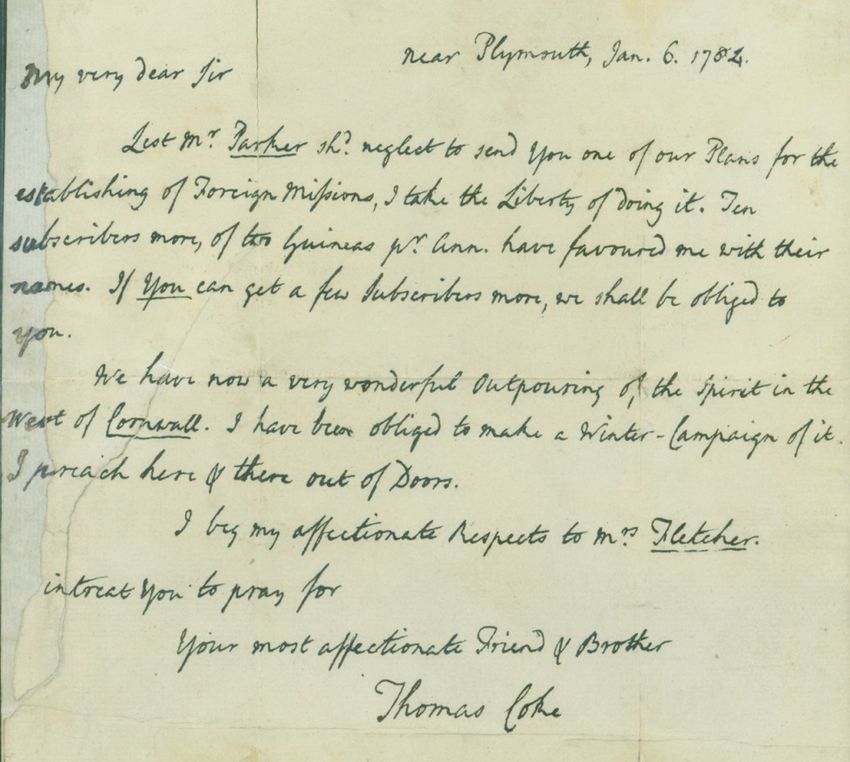 near Plymouth, Jan. 6. 1784.
My very dear Sir
Lest Mr. Parker shd. neglect to send You one of our Plans for the
establishing of Foreign Missions, I take the Liberty of doing it. Ten
subscribers more, of two Guineas pr. Ann. have favoured me with their
names. If You can get a few Subscribers more, we shall be obliged to
you.
We have now a very wonderful Outpouring of the Spirit in the
West of Cornwall. I have been obliged to make a Winter-Campaign of it.
I preach here & there out of Doors.
I beg my affectionate Respects to Mrs Fletcher.
intreat You to pray for
Your most affectionate Friend & Brother
Thomas Coke